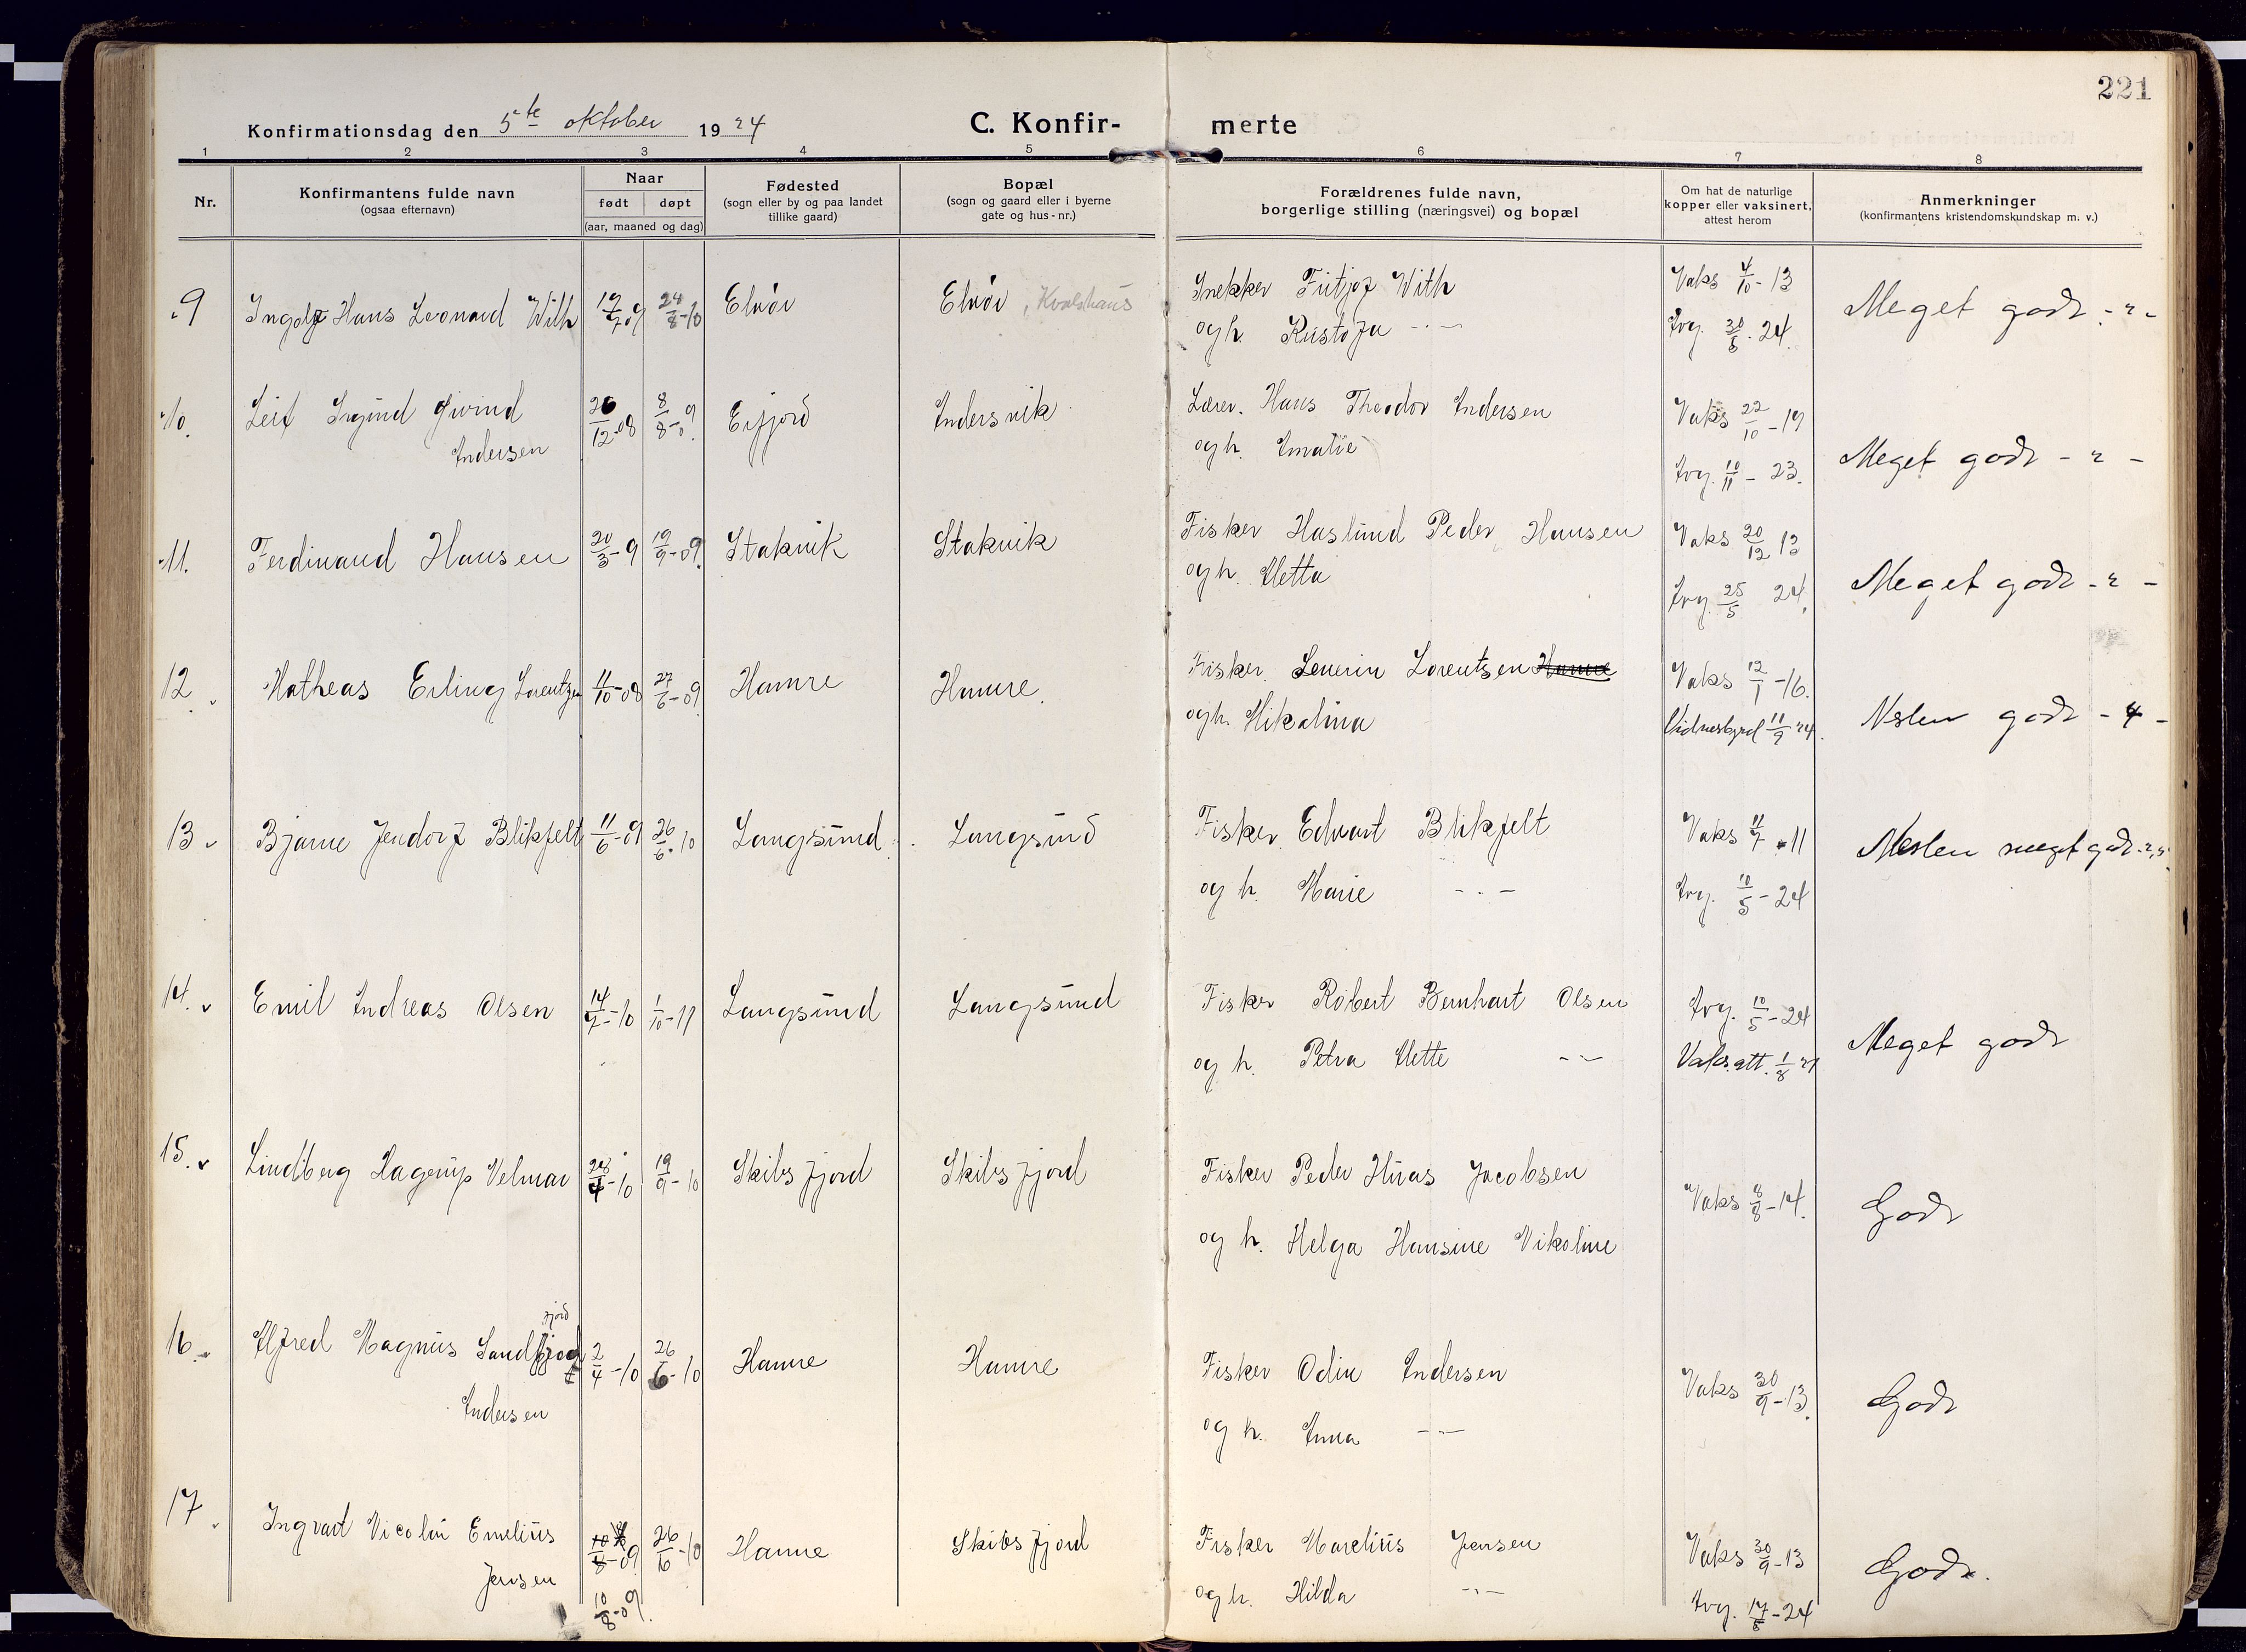 221
Konfirmationsdag den 5te oktober 1924
C. Konfir-merte
1 2 3 4 5 6 7 8
Nr.
Konfirmantens fulde navn
(ogsaa efternavn)
Naar
født døpt
(aar, maaned og dag)
Fødested
(sogn eller by og paa landet
tillike gaard)
Bopæl
(sogn og gaard eller i byerne
gate og hus-nr.)
Forældrenes fulde navn,
borgerlige stilling (næringsvei) og bopæl
Om hat de naturlige
kopper eller vaksinert,
attest herom
Anmerkninger
(konfirmantens kristendomskundskap m. v.)
9 Ingolf Hans Leonard With 24/8-10 Elvör Elvör, Kvalshaus
Snekker Fritjof With
og h. Kristofa -"-
Vaks 4/10-13
Meget godt
10. Leif Sigund Øivind
Andersen
8/8-09 Erfjord Andersvik
Lærer. Hans Theodor Andersen
og h. Amalie
Vaks 22/10-19
Tvg. 10/11-23.
Meget godt
11. Ferdinand Hansen 20/3-9 19/9-09. Stakvik Stakvik
Fisker Haslund Peder Hansen
og h. Metta
Vaks 20/12 13
Tvg. 25/5 24.
Meget godt
12. Matheas Erling Lorentzen 11/10-08 27/6-09 Hamre Hamre.
Fisker Severin Lorentsen Hamre
og h. Nikolina
Vaks 12/1-16.
Vidnesbyrd 11/9 24.
Neslen godt - 4 -
13 Bjarne Jendorf Blikfelt 11/6-09 26/6-10 Langsund Langsund
Fisker Edvart Blikfelt
og h. Marie -"-
Vaks 11/7-11
Tvg. 10/5-24
Neslen meget godt
14. Emil Andreas Olsen 14/7-10 1/10-11 Langsund Langsund
Fisker Robert Bernhart Olsen
og h. Petra Mette -"-
Tvg. 10/5-24
Vaks.att. 1/8
Meget godt
15. Lindberg Hagerup Velmar 28/4-10 19/9-10 Skibsfjord Skibsfjord
Fisker Peder Huas Jacobsen
og h. Helga Hansine Nikoline
Vaks 8/8-14.
Godt
16 Alfred Magnus Sandfjord
fjord
Andersen
2/4-10 26/6-10 Hamre Hamre
Fisker Odin Andersen
og h. Anna -"-
Vaks 30/9-13.
Godt
17 Ingvart Nicolai Emelius
Jensen
26/6-10 Hamre Skibsfjord
10/8-09.
Fisker Marelius Jensen
og h. Hilda -"-
Vaks 30/9-13
Tvg. 17/5-24
Godt.